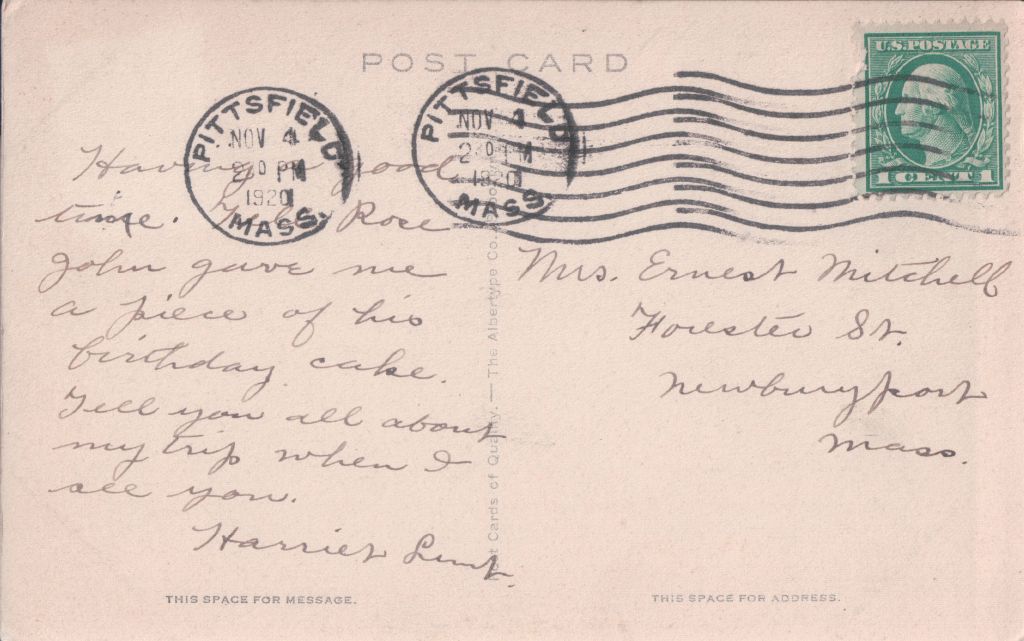 POST CARD
PITTSFIELD
NOV 4
PM
1920
MASS.
PITTSFIELD
NOV 4
2 PM
1920
MASS
U.S. POSTAGE
1 CENT 1
Having a good
time. Rose
John gave me
a piece of his
birthday cake.
Tell you all about
my trip when I
see you.
Harriet Lunt.
Post Cards of Quality. — The Albertype Co.
Mrs. Ernest Mitchell
Forester St.
Newburyport
Mass.
THIS SPACE FOR MESSAGE.
THIS SPACE FOR ADDRESS.